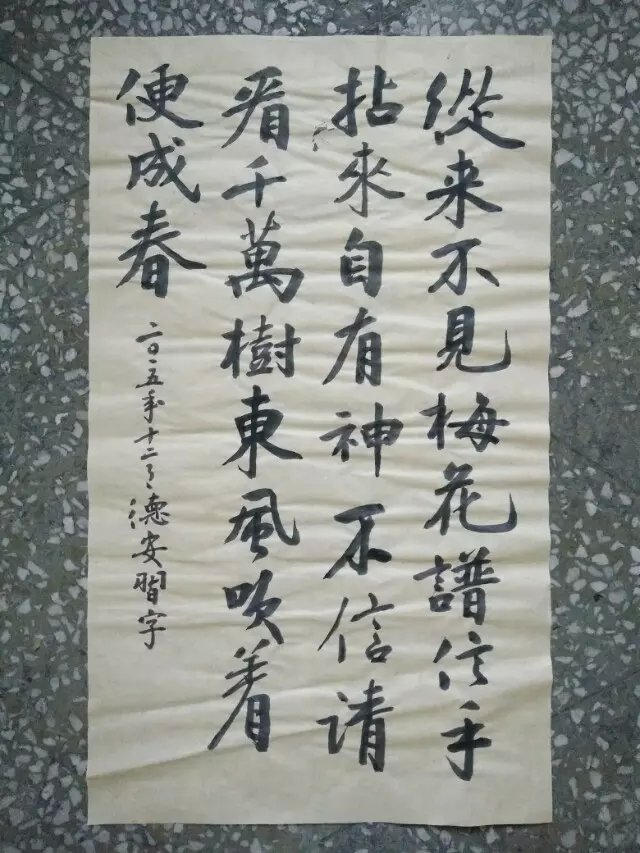 從来不見梅花譜信手
拈來自有神不信請
看千萬樹東風吹着
便成春
二〇一五年十二月德安習字